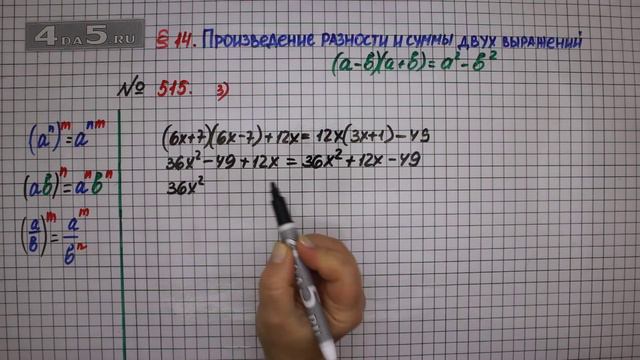 4DA5.RU
§ 14. Произведение разности и суммы двух выражений
(a-b)(a+b)=a²-b²
№ 515. 3)
(aⁿ)ᵐ=aⁿᵐ
(ab)ⁿ=aⁿbⁿ
(a/b)ᵐ=aᵐ/bⁿ
(6x+7)(6x-7)+12x=12x(3x+1)-49
36x²-49+12x=36x²+12x-49
36x²